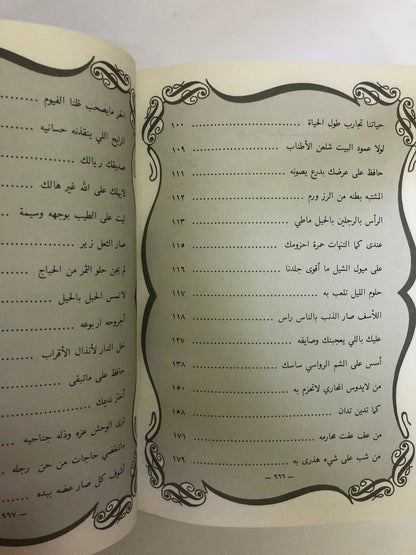 حياتنا تجارب طول الحياة .......... ١٠٠
لولا عمود البيت شلعن الأطناب .......... ١٠٩
حافظ على عرضك بدرع يصونه .......... ١١١
المشتبه بطنه من الرز ورم .......... ١١٢
الرأس بالرجلين بالحيل ماطي .......... ١١٣
عندى كما التنهات حمرة احزومك .......... ١١٥
على ميول الشبل ما أقوى جلدنا .......... ١١٦
حلوم الليل تلعب به .......... ١١٧
اللأسف صار الذنب بالناس راس .......... ١١٨
عليك باللي يعجبنك وصايفه .......... ١٢٧
أسس على الشم الرواسي ساسك .......... ١٣٨
من لايدوس المحاري لاتحزم به .......... ١٥٠
كما تدين تدان .......... ١٥٨
من عف عفت محارمه .......... ١٧١
من شب على شيء هذرى به .......... ١٧٩
– ٦٦٦ –
الحر مايصحب ظنا الفيوم ..........
الرابح اللي ينقذنه حسانيه ..........
صديقك ريالك ..........
لايهلك على الله غير هالك ..........
ليت على الطيب بوجهه وسيمة ..........
صار الكعل زير ..........
لم يجن حلو الثمر من الحجاج ..........
لانمس الحبل بالحيل ..........
أجروحه اربوعه ..........
خل الدار لأنذال الأقراب ..........
حافظ على ماتبقى ..........
أختر نديمك ..........
ترى الوحش عزه وذله جناحيه ..........
ماتنقضي حاجات من حن رجله ..........
أشوف كل صار عضه بيده ..........
– ٦٦٧ –